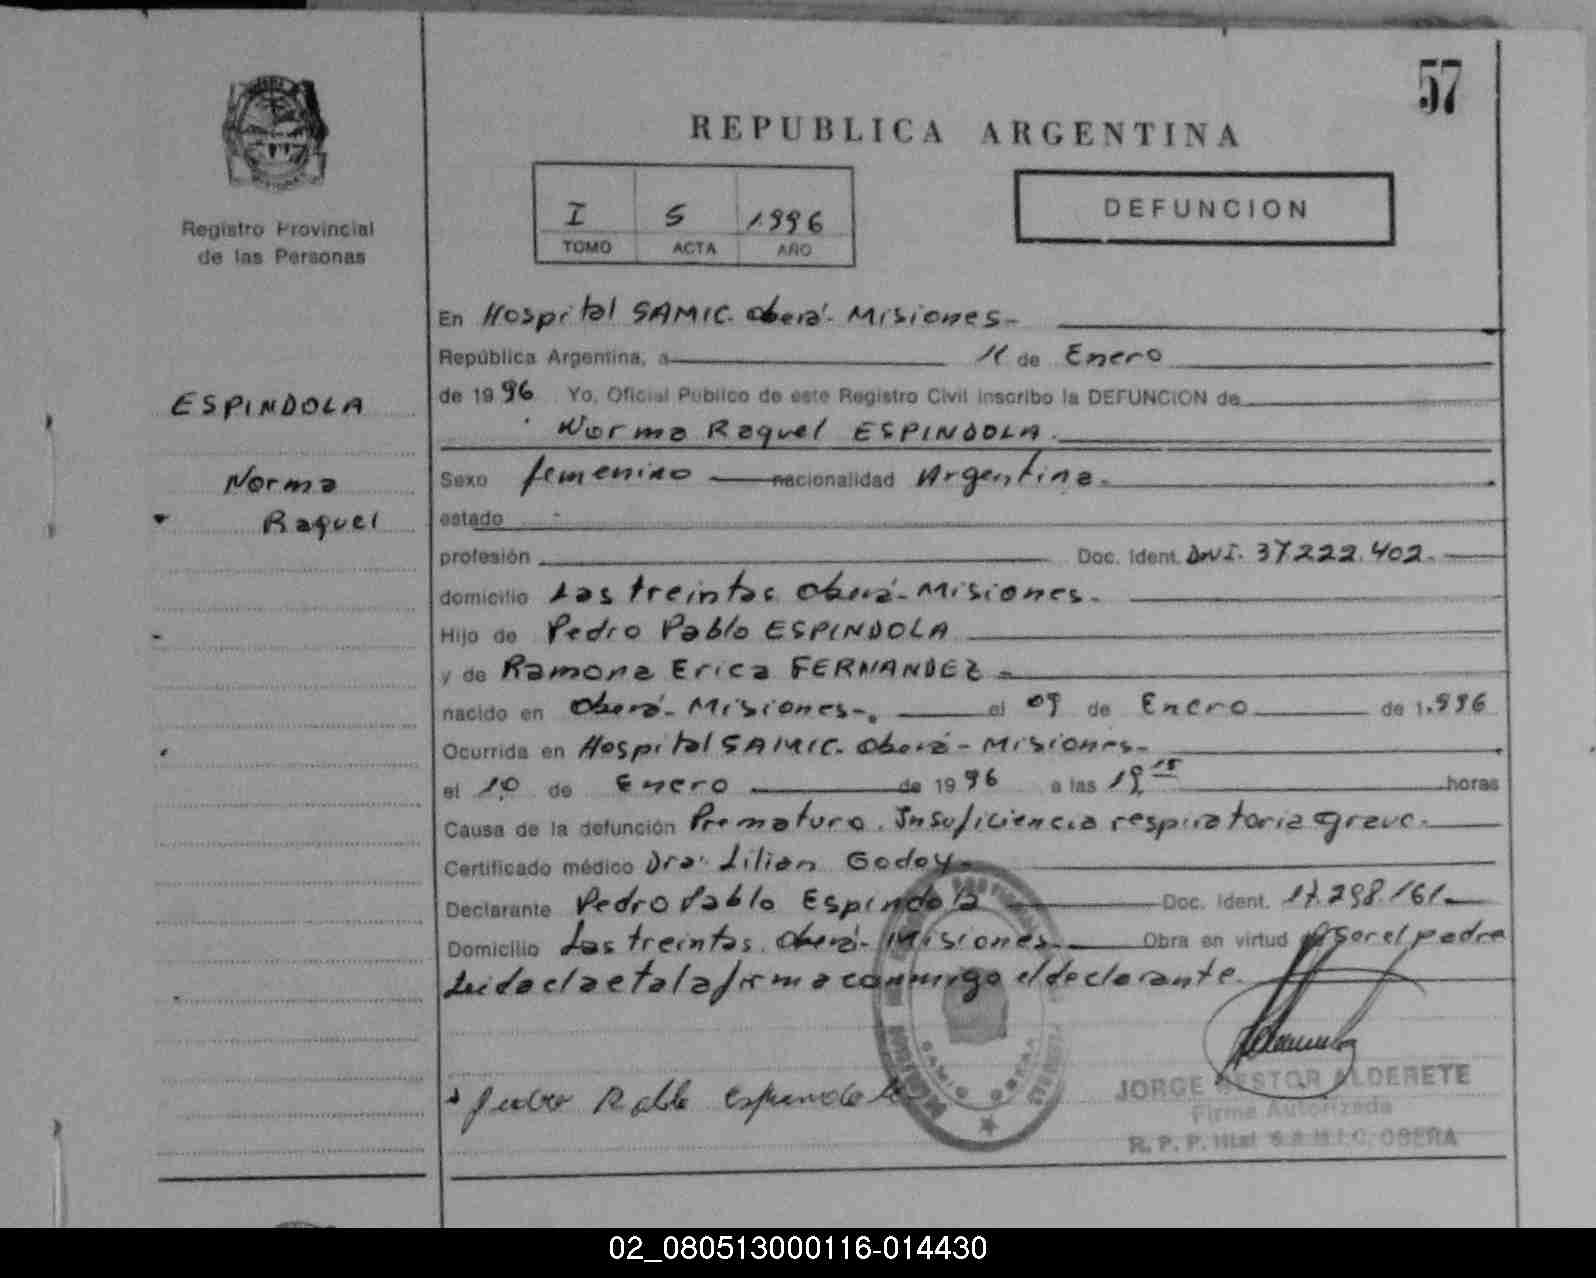 57
REPUBLICA ARGENTINA
Registro Provincial
de las Personas
I S 1.996
TOMO ACTA AÑO
DEFUNCION
ESPINDOLA
Norma
Raquel
En Hospital SAMIC. Oberá. Misiones-
República Argentina, a 11 de Enero
de 1996 Yo, Oficial Público de este Registro Civil inscribo la DEFUNCION de
Norma Raquel ESPINDOLA.
Sexo femenino nacionalidad Argentina.
estado
profesión Doc. Ident. DNI. 37.222.402.
domicilio Las treintas. Oberá- Misiones.
Hijo de Pedro Pablo ESPINDOLA
y de Ramona Erica FERNANDEZ
nacido en Oberá- Misiones-. el 09 de Enero de 1.996
Ocurrida en Hospital SAMIC. Oberá- Misiones-
el 10 de Enero de 1996 a las 19 15 horas
Causa de la defunción Prematuro. Insuficiencia respiratoria grave.
Certificado médico Dra. Lilian Godoy-
Declarante Pedro Pablo Espindola Doc. Ident. 17.298.161
Domicilio Las treintas. Oberá- Misiones. Obra en virtud ser el padre
Leida el acta la firma conmigo el declarante.
Pedro Pablo Espindola
JORGE NESTOR ALDERETE
Firma Autorizada
R. P. P. Htal S.A.M.I.C. OBERA
SAMIC OBERA
02_080513000116-014430